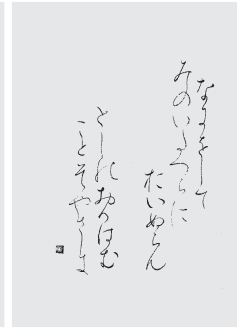 なにをして
みのいたつらに
おいぬらん
としのおもはむ
ことそやさしき